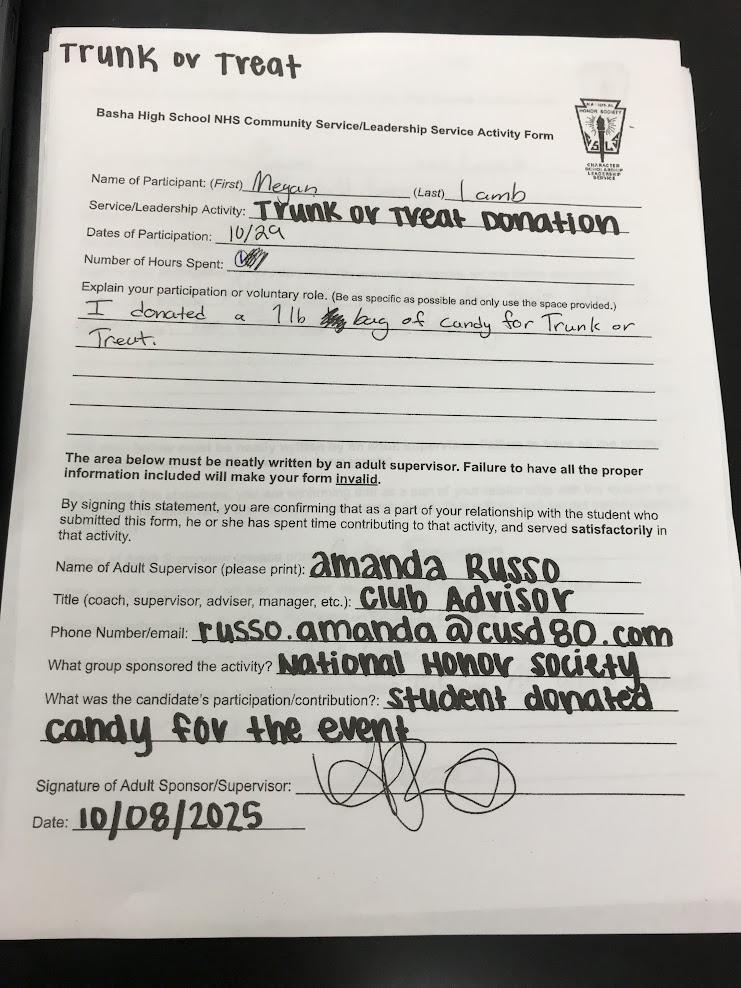 Trunk or Treat
NATIONAL
HONOR SOCIETY
CHARACTER
SCHOLARSHIP
LEADERSHIP
SERVICE
Basha High School NHS Community Service/Leadership Service Activity Form
Name of Participant: (First) Megan (Last) Lamb
Service/Leadership Activity: Trunk or Treat Donation
Dates of Participation: 10/29
Number of Hours Spent:
Explain your participation or voluntary role. (Be as specific as possible and only use the space provided.)
I donated a 1lb bag of candy for Trunk or
Treat.
The area below must be neatly written by an adult supervisor. Failure to have all the proper
information included will make your form invalid.
By signing this statement, you are confirming that as a part of your relationship with the student who
submitted this form, he or she has spent time contributing to that activity, and served satisfactorily in
that activity.
Name of Adult Supervisor (please print): amanda Russo
Title (coach, supervisor, adviser, manager, etc.): Club Advisor
Phone Number/email: russo.amanda@cusd80.com
What group sponsored the activity? National Honor Society
What was the candidate's participation/contribution?: student donated
candy for the event
Signature of Adult Sponsor/Supervisor:
Date: 10/08/2025